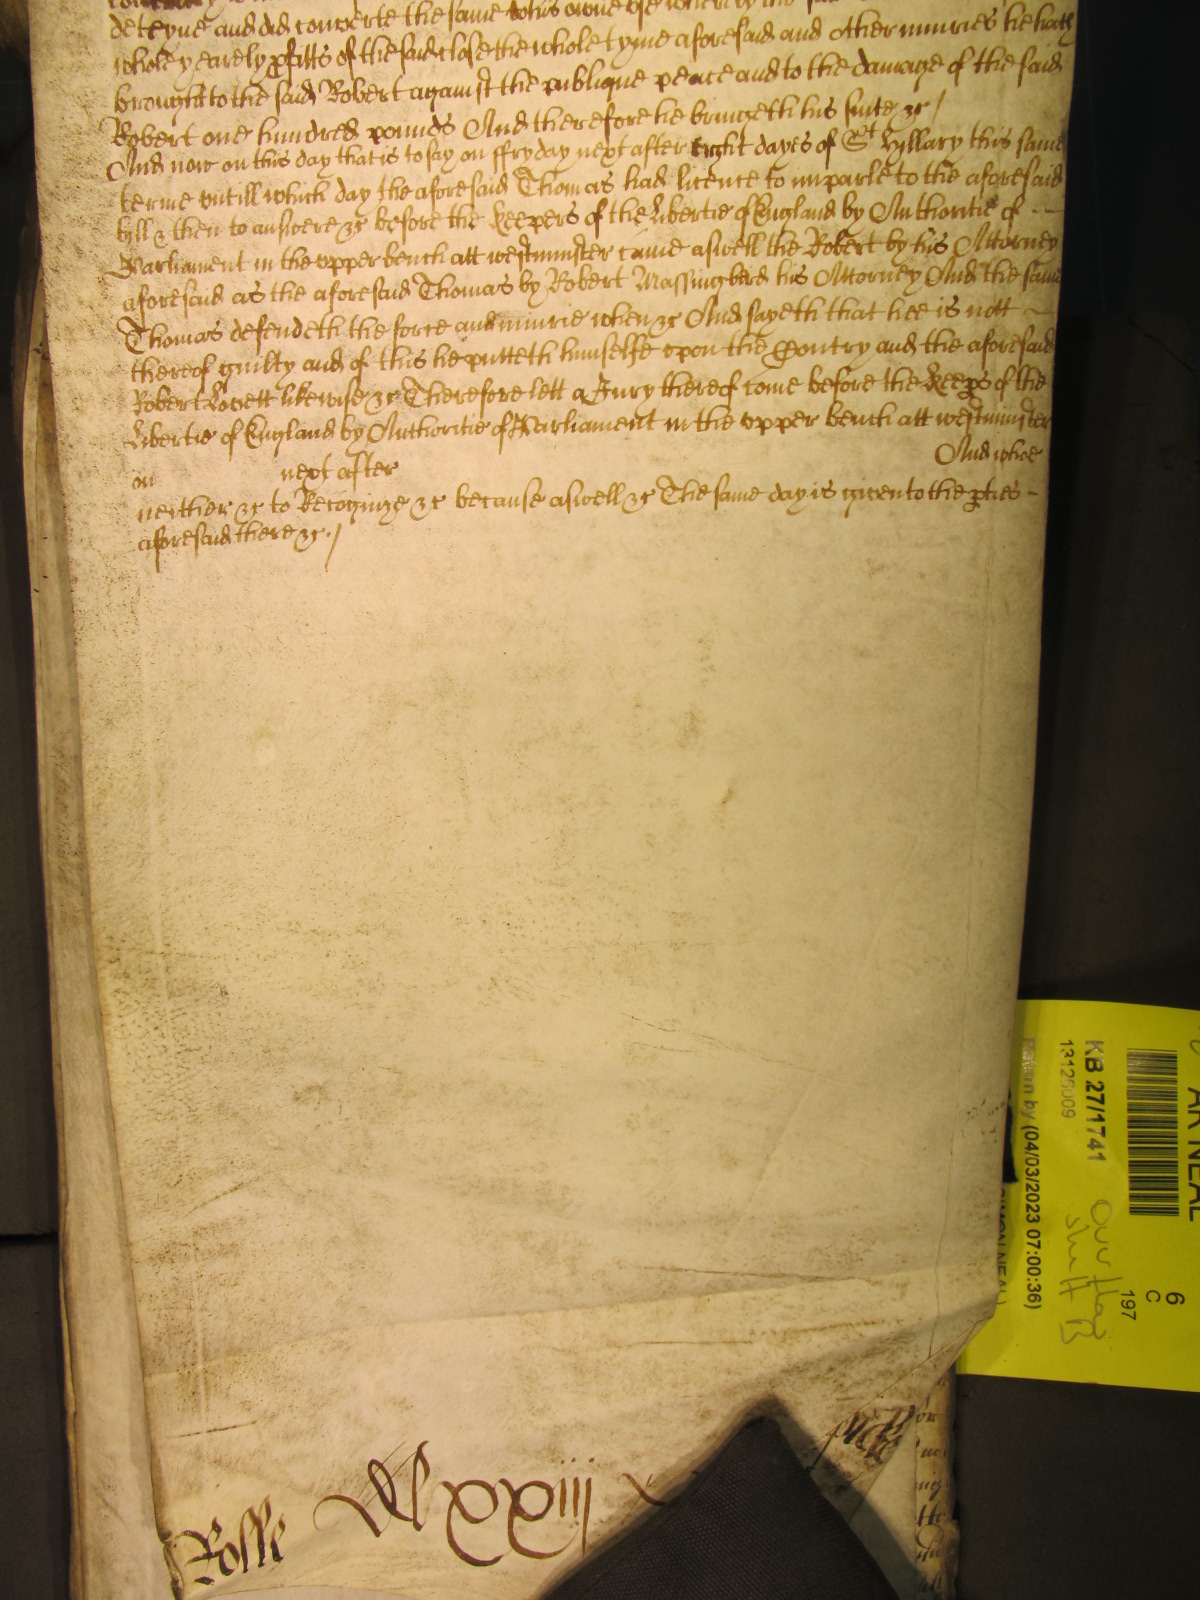 deteyne and did converte the same to his owne use whereby the
whole yearely pfitts of the said close the whole tyme aforesaid and other iniuries he hath
brought to the said Robert against the publique peace and to the damage of the said
Robert one hundred pounds And therefore he bringeth his suite &c /
And now on this day that is to say on ffryday next after eight dayes of St Hillary this same
terme untill which day the aforesaid Thomas had licence to imparle to the aforesaid
bill & then to answere &c before the Keepers of the Libertie of England by Authoritie of
Parliament in the upper bench att westminster came aswell the Robert by his Attorney
aforesaid as the aforesaid Thomas by Robert Massingberd his Attorney And the same
Thomas defendeth the force and iniurie when &c And sayeth that hee is nott
thereof guilty and of this he putteth himselfe upon the Contry and the aforesaid
Robert Lovett likewise &c Therefore lett a Jury thereof come before the Keeps of the
Libertie of England by Authoritie of Parliament in the upper bench att westminster
on next after And whoe
neither &c to Recognize &c because aswell &c The same day is given to the pties -
aforesaid there &c. /
Rolle xxiij
KB 27/1741
13126009
Return by (04/03/2023 07:00:36)
SIMON NEAL)
AR NEAL
6
C
197